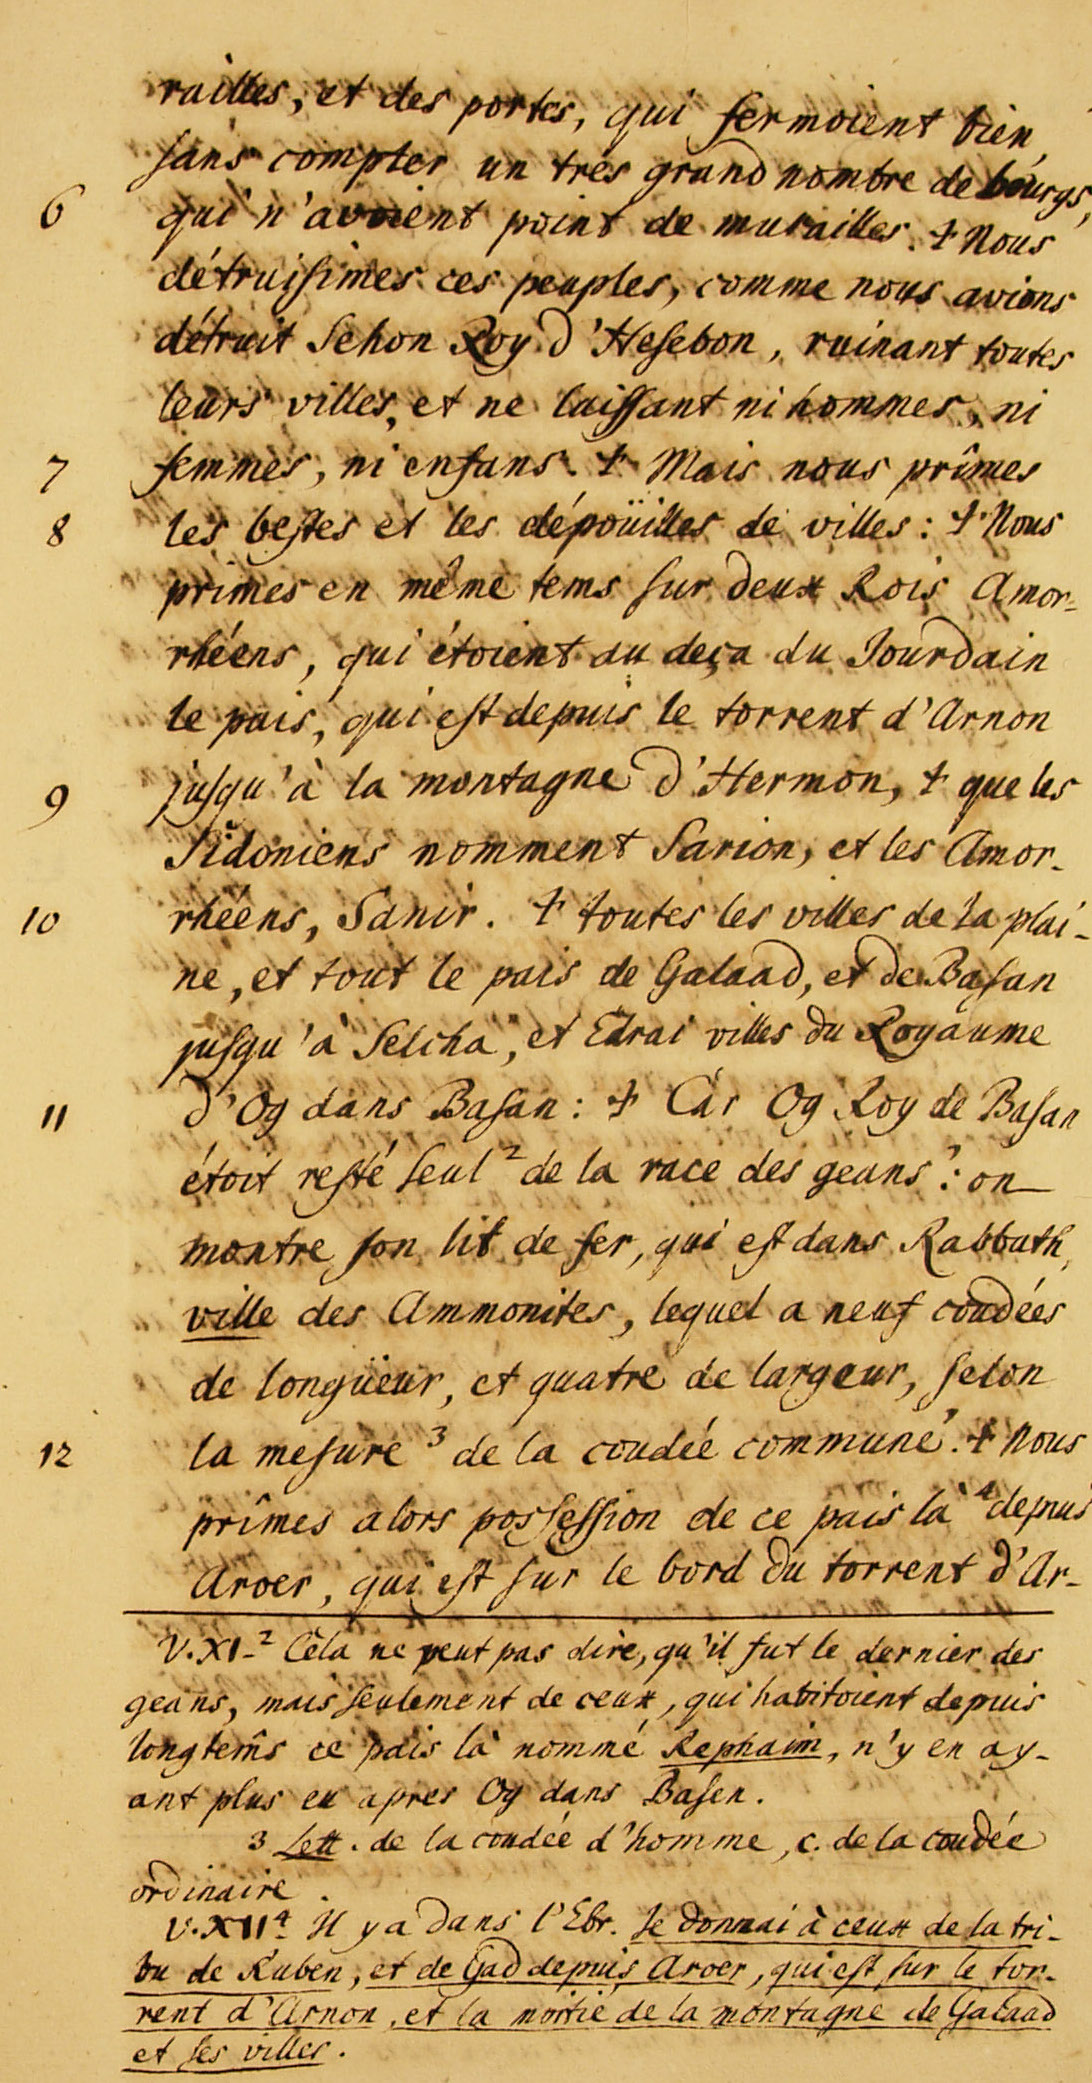 railles, et des portes, qui fermoient bien,
sans compter un tres grand nombre de bourgs,
6 qui n'avoient point de murailles. + Nous
détruisimes ces peuples, comme nous avions
détruit Sehon Roy d'Hesebon, ruinant toutes
leurs villes, et ne laissant ni hommes, ni
7 femmes, ni enfans. + Mais nous prîmes
8 les bestes et les dépoüilles de villes : + Nous
primes en même tems sur deux Rois Amor-
rhéens, qui étoient au deça du Jourdain
le pais, qui est depuis le torrent d'Arnon
9 jusqu'à la montagne d'Hermon, + que les
Sidoniens nomment Sarion, et les Amor-
10 rhéens, Sanir. + toutes les villes de la plai-
ne, et tout le pais de Galaad, et de Basan
jusqu'à Selcha, et Edrai villes du Royaume
11 d'Og dans Basan : + Car Og Roy de Basan
étoit resté seul ² de la race des geans' : on
montre son lit de fer, qui est dans Rabbath,
ville des Ammonites, lequel a neuf coudées
de longüeur, et quatre de largeur, selon
12 la mesure ³ de la coudée commune'. + Nous
prîmes alors possession de ce pais là ⁴ depuis
Aroer, qui est sur le bord du torrent d'Ar-
V. XI-² Cela ne peut pas dire, qu'il fut le dernier des
geans, mais seulement de ceux, qui habitoient depuis
longtems ce pais là nommé Rephaim, n'y en ay-
ant plus eu apres Og dans Basen.
3 Lett. de la coudée d'homme, c. de la coudée
ordinaire.
V. XII⁴ Il y a dans l'Ebr. Je donnai à ceux de la tri-
bu de Ruben, et de Gad depuis Aroer, qui est sur le tor-
rent d'Arnon, et la moitié de la montagne de Galaad
et ses villes.